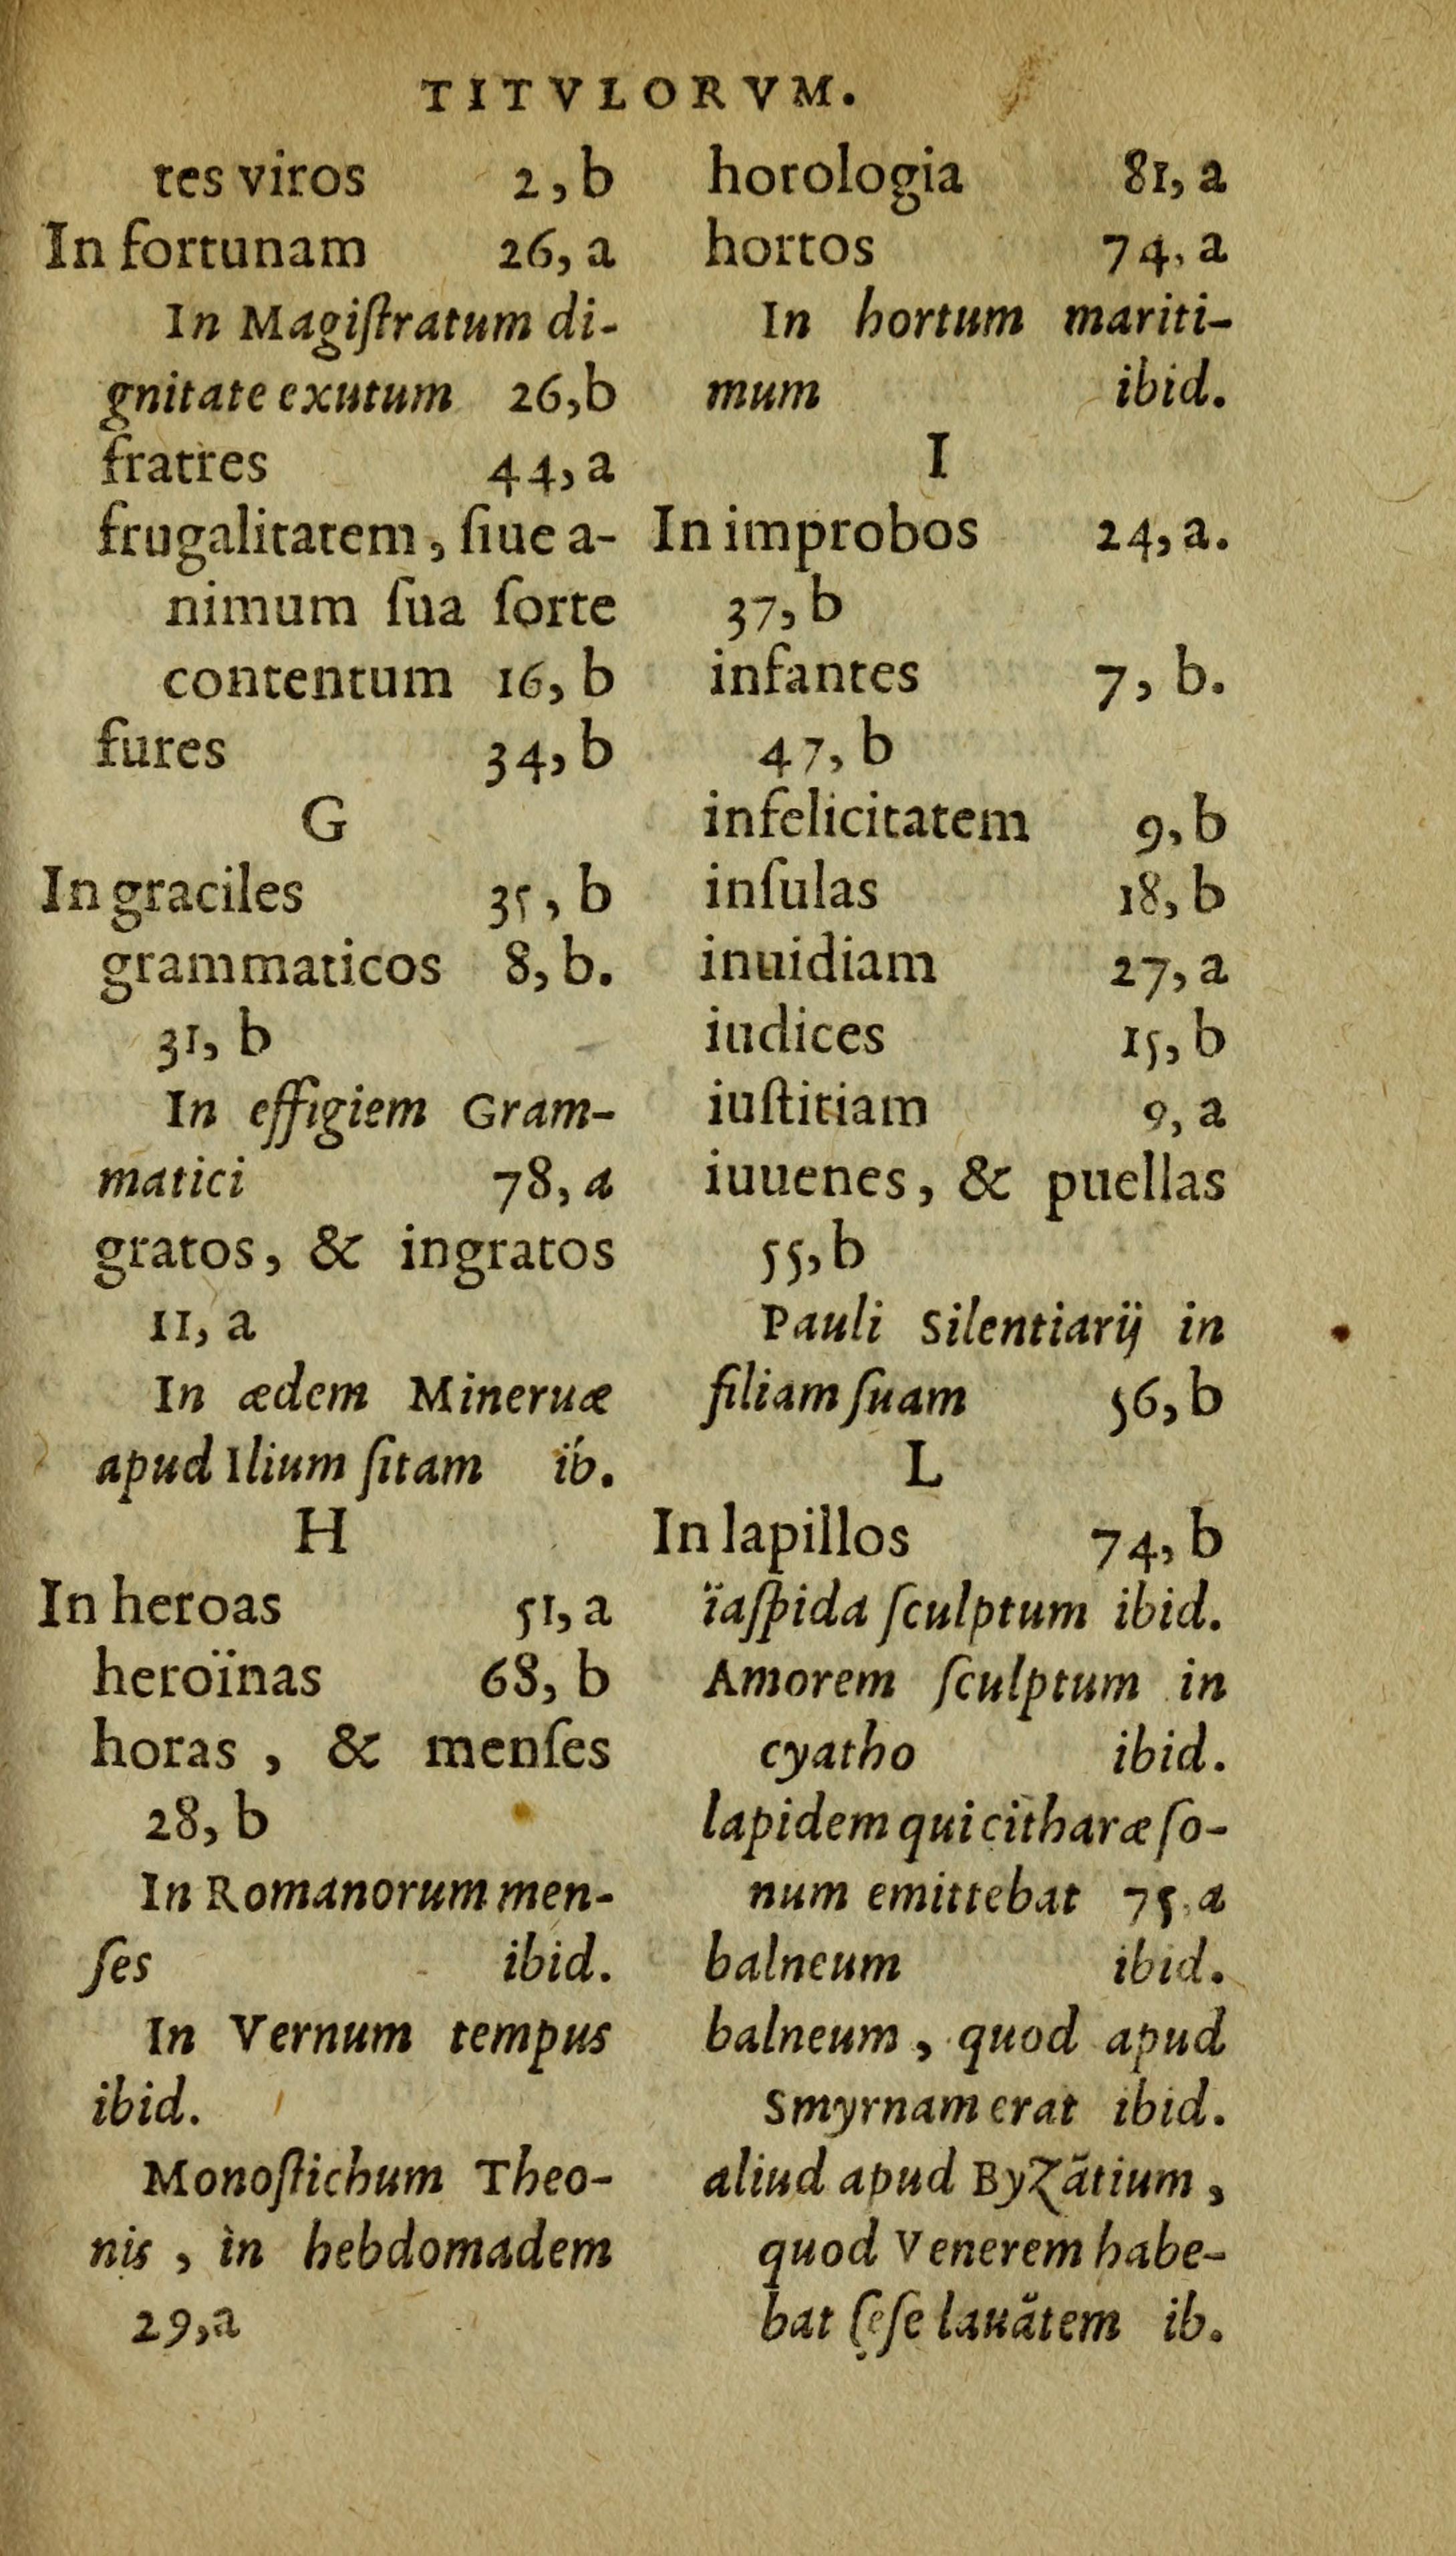 TITVLORVM.
tes viros 2, b
In fortunam 26, a
In Magiſtratum di-
gnitate exutum 26,b
fratres 44, a
frugalitatem, ſiue a-
nimum ſua ſorte
contentum 16, b
fures 34, b
G
In graciles 35, b
grammaticos 8, b.
31, b
In effigiem Gram-
matici 78, a
gratos, & ingratos
11, a
In ædem Mineruæ
apud Ilium ſitam ib.
H
In heroas 51, a
heroïnas 68, b
horas, & menſes
28, b
In Romanorum men-
ſes ibid.
In Vernum tempus
ibid.
Monoſtichum Theo-
nis, in hebdomadem
29,a
horologia 81, a
hortos 74, a
In hortum mariti-
mum ibid.
I
In improbos 24, a.
37, b
infantes 7, b.
47, b
infelicitatem 9, b
inſulas 18, b
inuidiam 27, a
iudices 15, b
iuſtitiam 9, a
iuuenes, & puellas
55, b
Pauli Silentiarij in
filiam ſuam 56, b
L
In lapillos 74, b
ïaſpida ſculptum ibid.
Amorem ſculptum in
cyatho ibid.
lapidem qui citharæ ſo-
num emittebat 75, a
balneum ibid.
balneum, quod apud
Smyrnam erat ibid.
aliud apud Byzãtium,
quod Venerem habe-
bat ſeſe lauãtem ib.